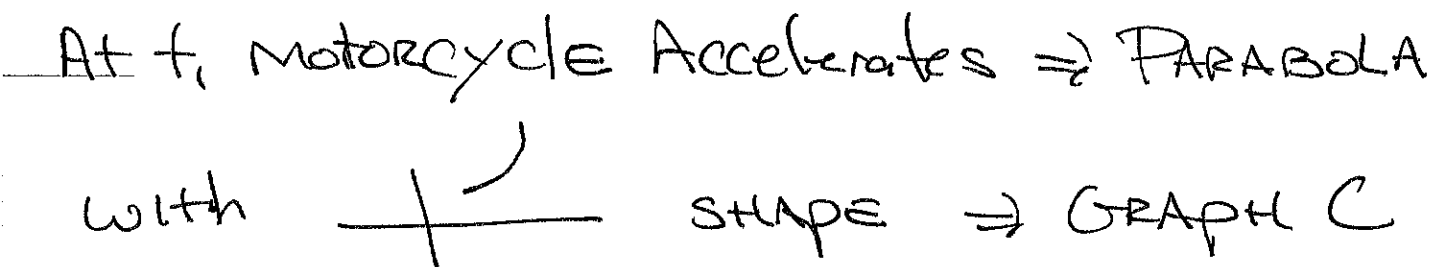 At t₁ MOTORCYCLE Accelerates ⇒ PARABOLA
with SHAPE ⇒ GRAPH C